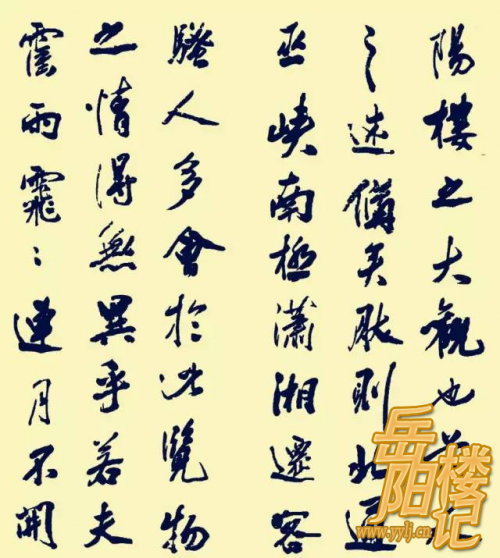 陽樓之大觀也
之述備矣然則北通
巫峽南極瀟湘遷客
騷人多會於此覽物
之情得無異乎若夫
霪雨霏々連月不開
岳阳楼记
www.yylj.cn